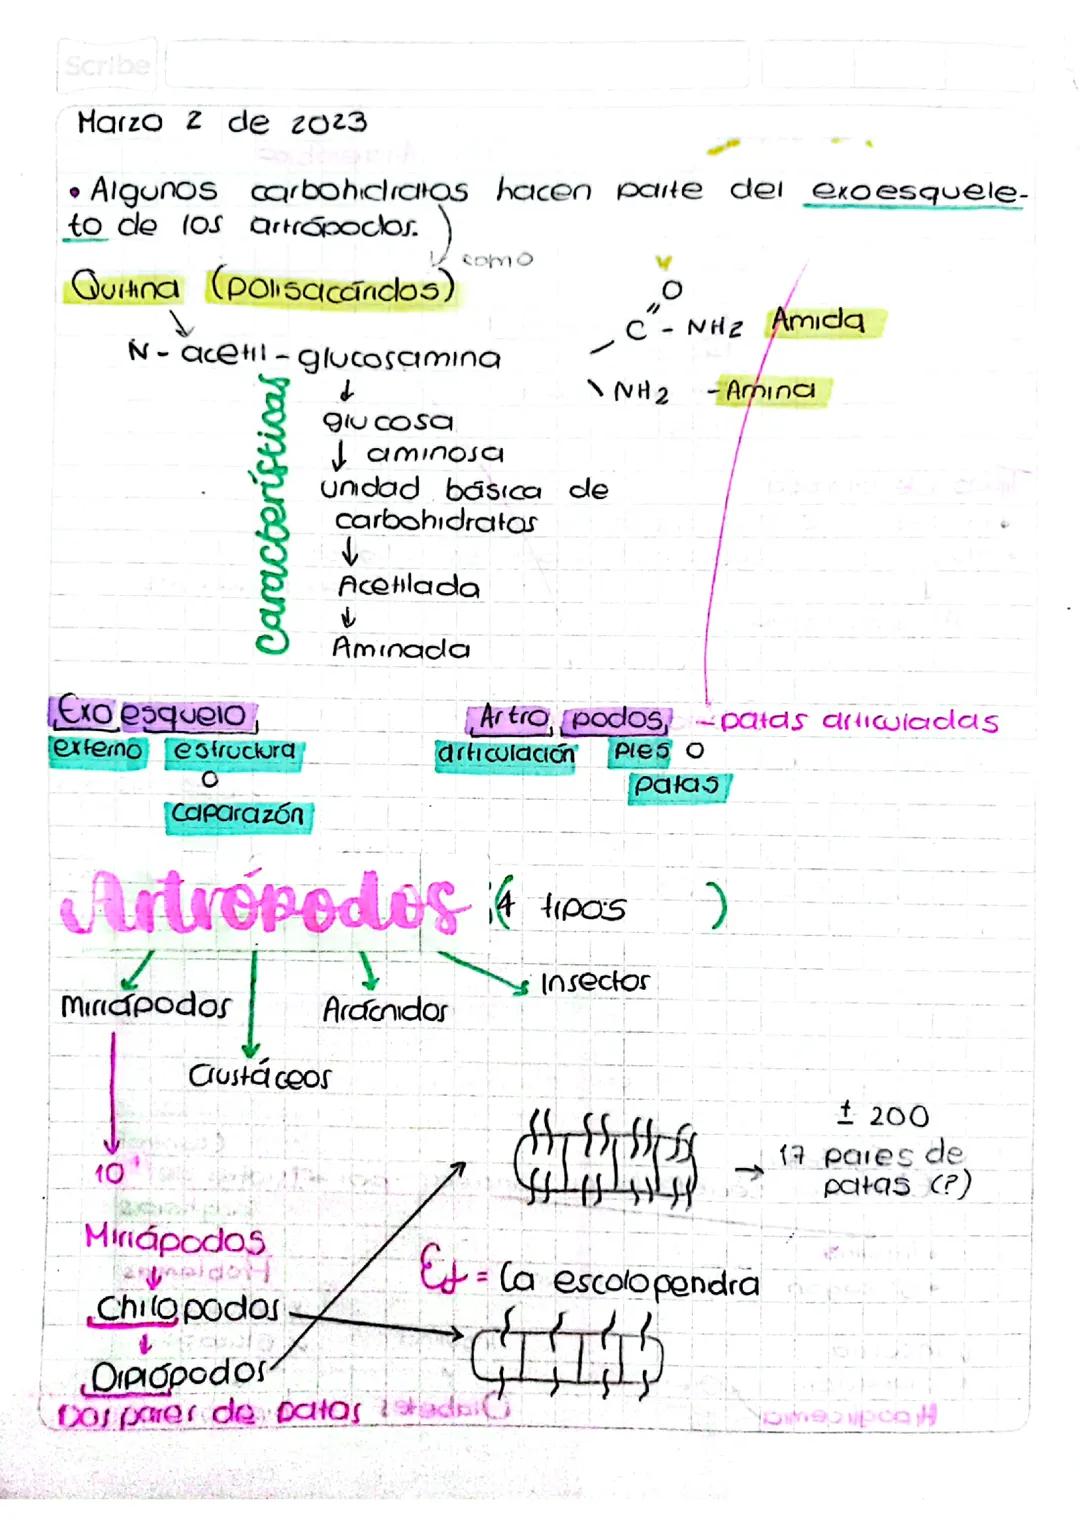 Scribe
Marzo 2 de 2023
• Algunos carbohidratos hacen parte del exoesquele-
to de los artrópodos.
como
Quitina (polisacáridos)
N - acetil - glucosamina
Características
glucosa
aminosa
unidad básica de
carbohidratos
Acetilada
Aminada
O
C - NH2 Amida
NH2 - Amina
Exoesquelo
externo estructura
o
caparazón
Artro podos - patas articuladas
articulación pies o
patas
Artrópodos (4 tipos)
Insectos
Miriápodos
Arácnidos
Crustáceos
± 200
17 pares de
patas (?)
10⁴
Miriápodos
Ej = La escolopendra
Chilopodos
Diplópodos
Dos pares de patas